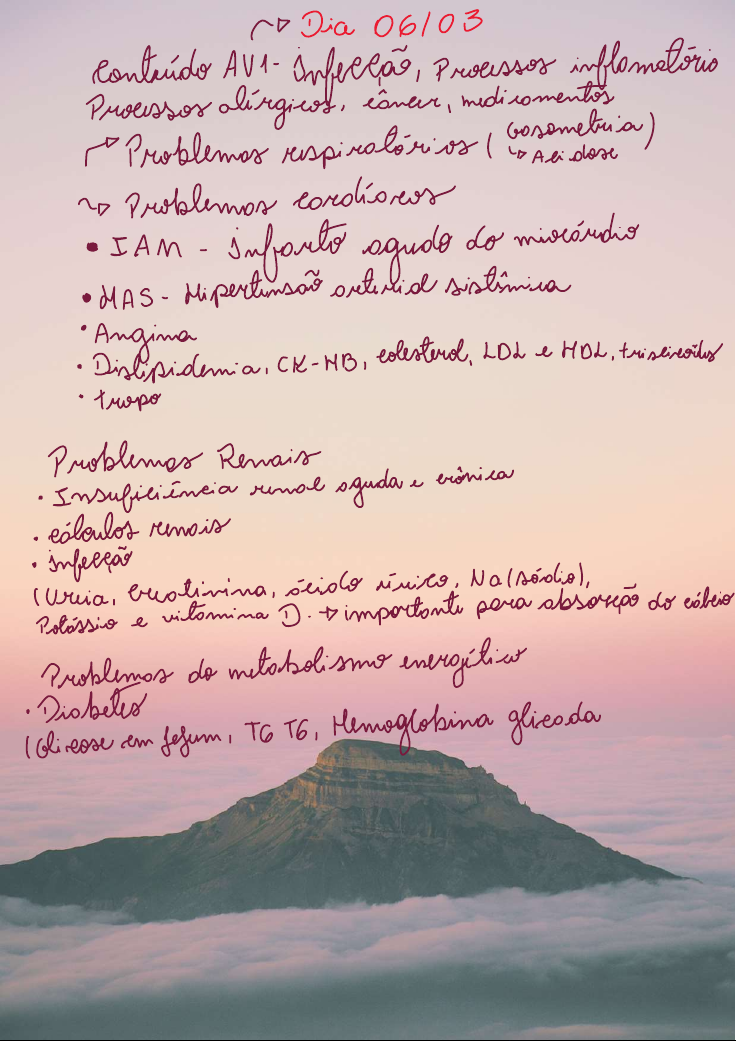 → Dia 06/03
Conteúdo AV1- Infecção, Processos inflamatório
Processos alérgicos, câncer, medicamentos
→ Problemas respiratórios ( Gasometria )
↳ Acidose
→ Problemas cardíacos
• IAM - Infarto agudo do miocárdio
• HAS - Hipertensão arterial sistêmica
• Angina
• Dislipidemia, CK-MB, colesterol, LDL e HDL,
• tropo
Problemas Renais
• Insuficiência renal aguda e crônica
• cálculos renais
• infecção
(Ureia, Creatinina, ácido úrico, Na (sódio),
Potássio e vitamina D. → importante para absorção do cálcio
Problemas do metabolismo energético
• Diabetes
(Glicose em jejum, TG TG, Hemoglobina glicada